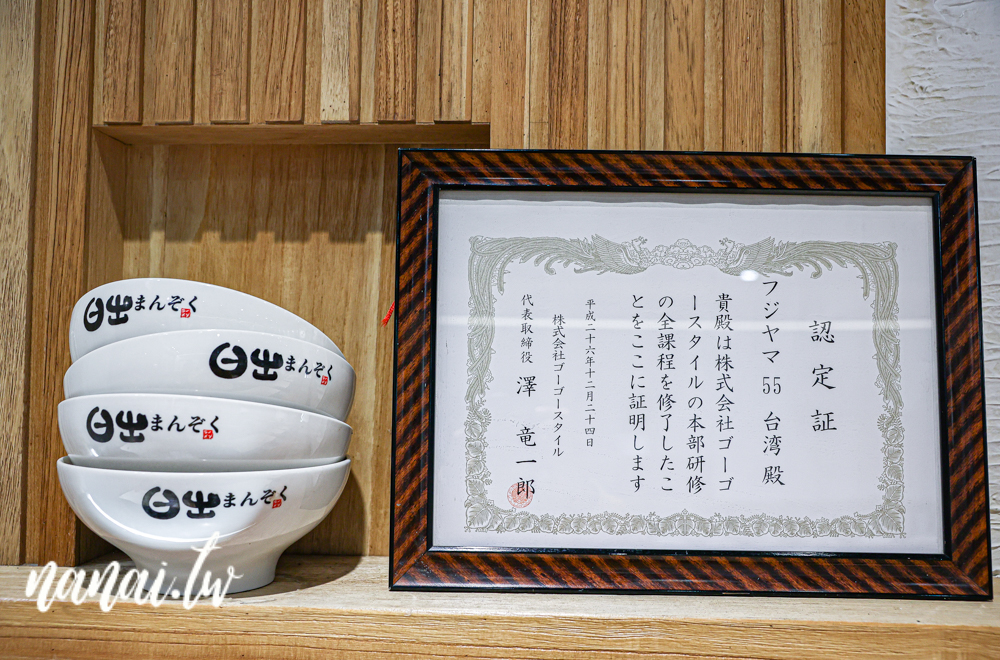 日出まんぞく
日出まんぞく
日出まんぞく
日出まんぞく
認定証
フジヤマ55 台湾殿
貴殿は株式会社ゴーゴ
ースタイルの本部研修
の全課程を修了したこ
とをここに証明します
平成二十六年十二月二十四日
株式会社ゴーゴースタイル
代表取締役 澤 竜一郎
nanai.tw